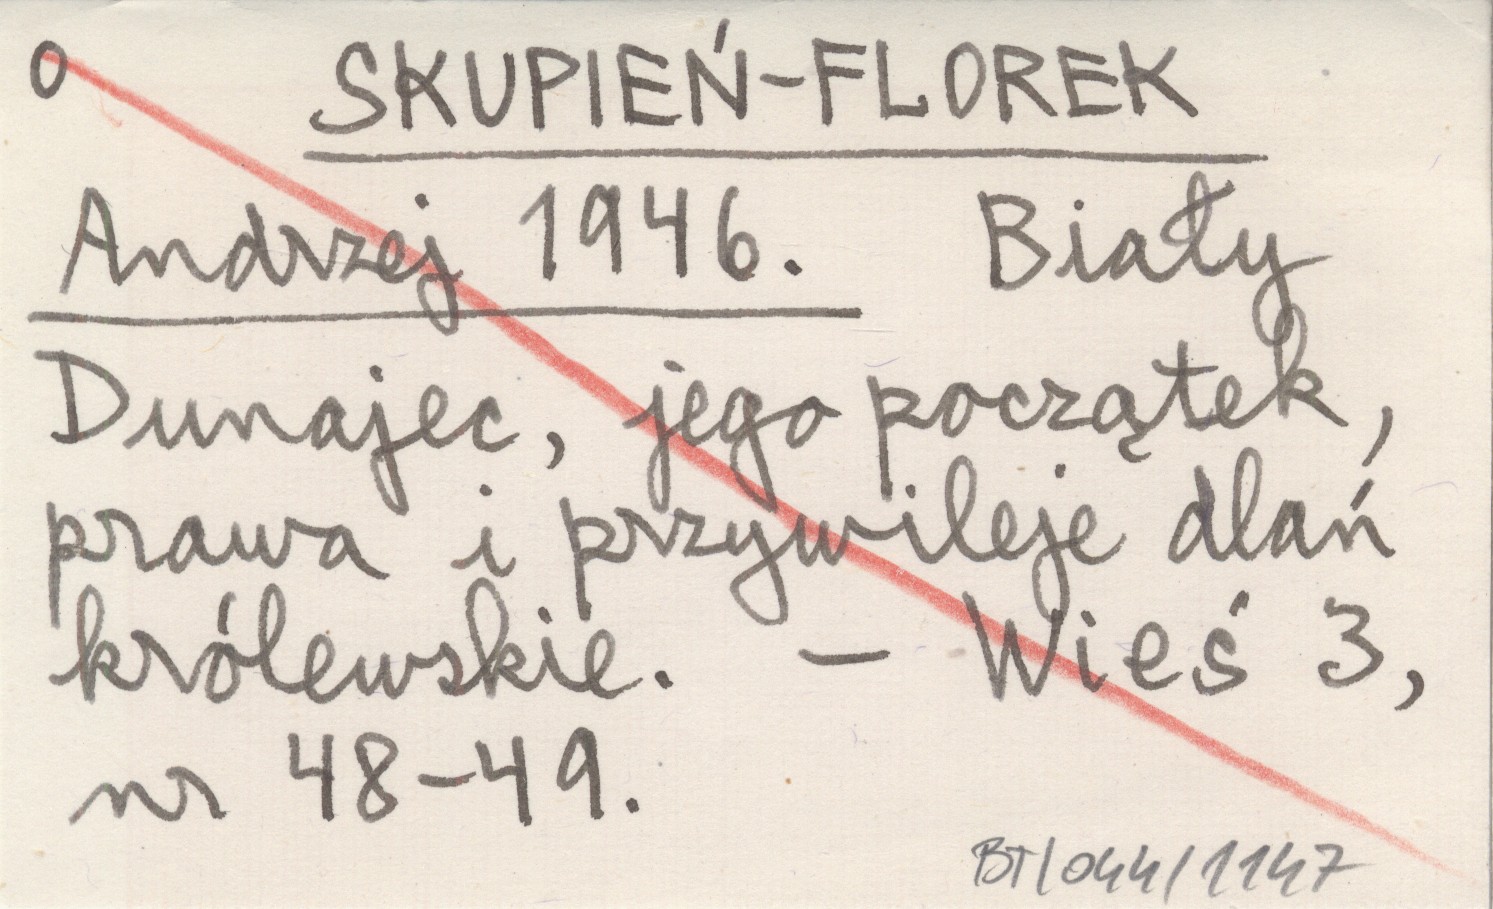 O SKUPIEŃ-FLOREK
Andrzej 1946. Biały
Dunajec, jego początek,
prawa i przywileje dlań
królewskie. – Wieś 3,
nr 48–49.
BT/044/1147